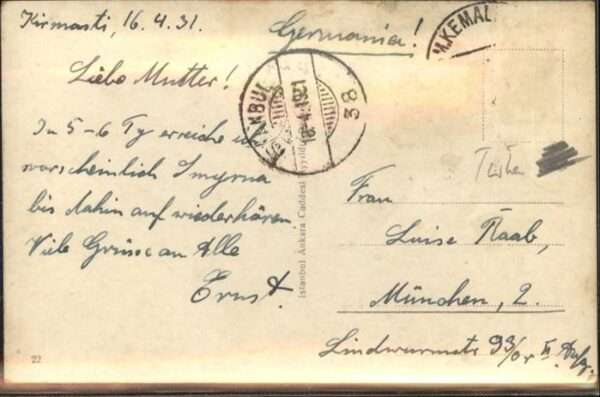 Kirmasti, 16.4.31.
Germania!
M.KEMAL
Liebe Mutter!
In 5-6 Tg erreiche ich
warscheinlich Smyrna
bis dahin auf wiederhören.
Viele Grüsse an Alle
Ernst.
38
Istanbul Ankara Caddesi
Frau
Luise Raab,
München, 2.
Lindwurmstr 93/or II. Aufg.
22